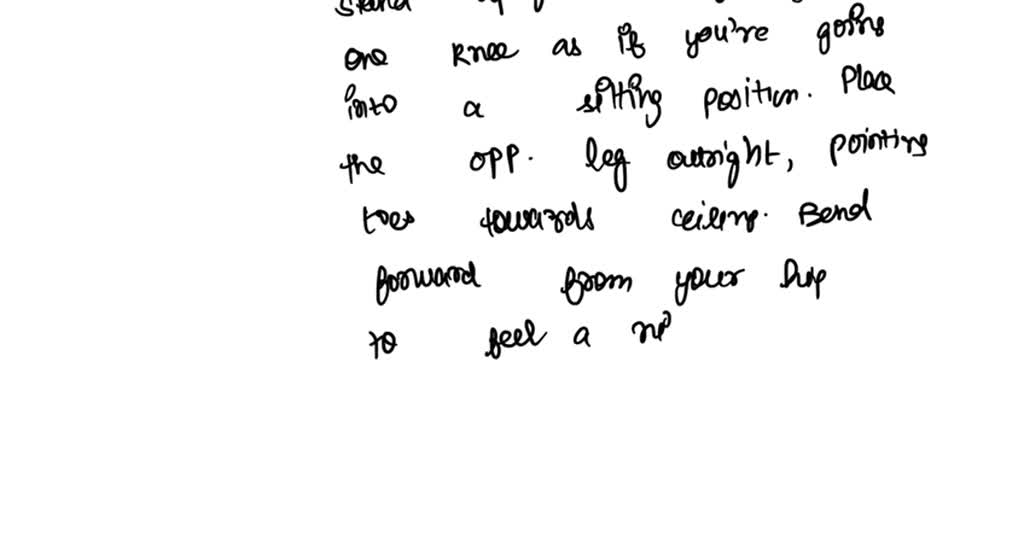 stand
one knee as if you're going
into a sitting position. Place
the opp. leg outright, pointing
toes towards ceiling. Bend
forward from your hip
to feel a